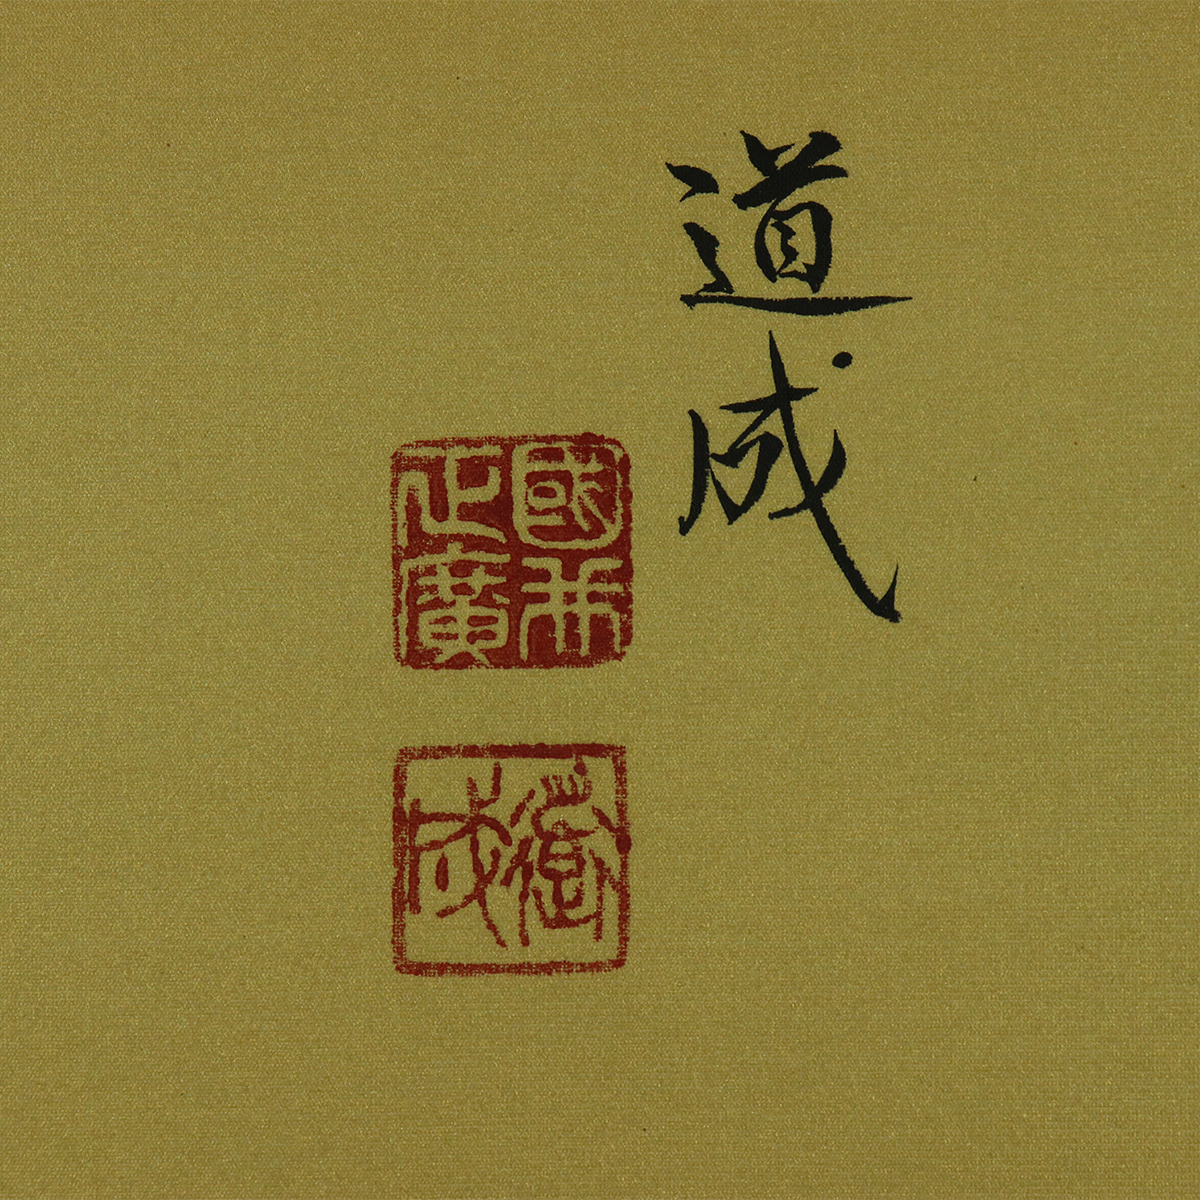 道成
國井
正廣
道成